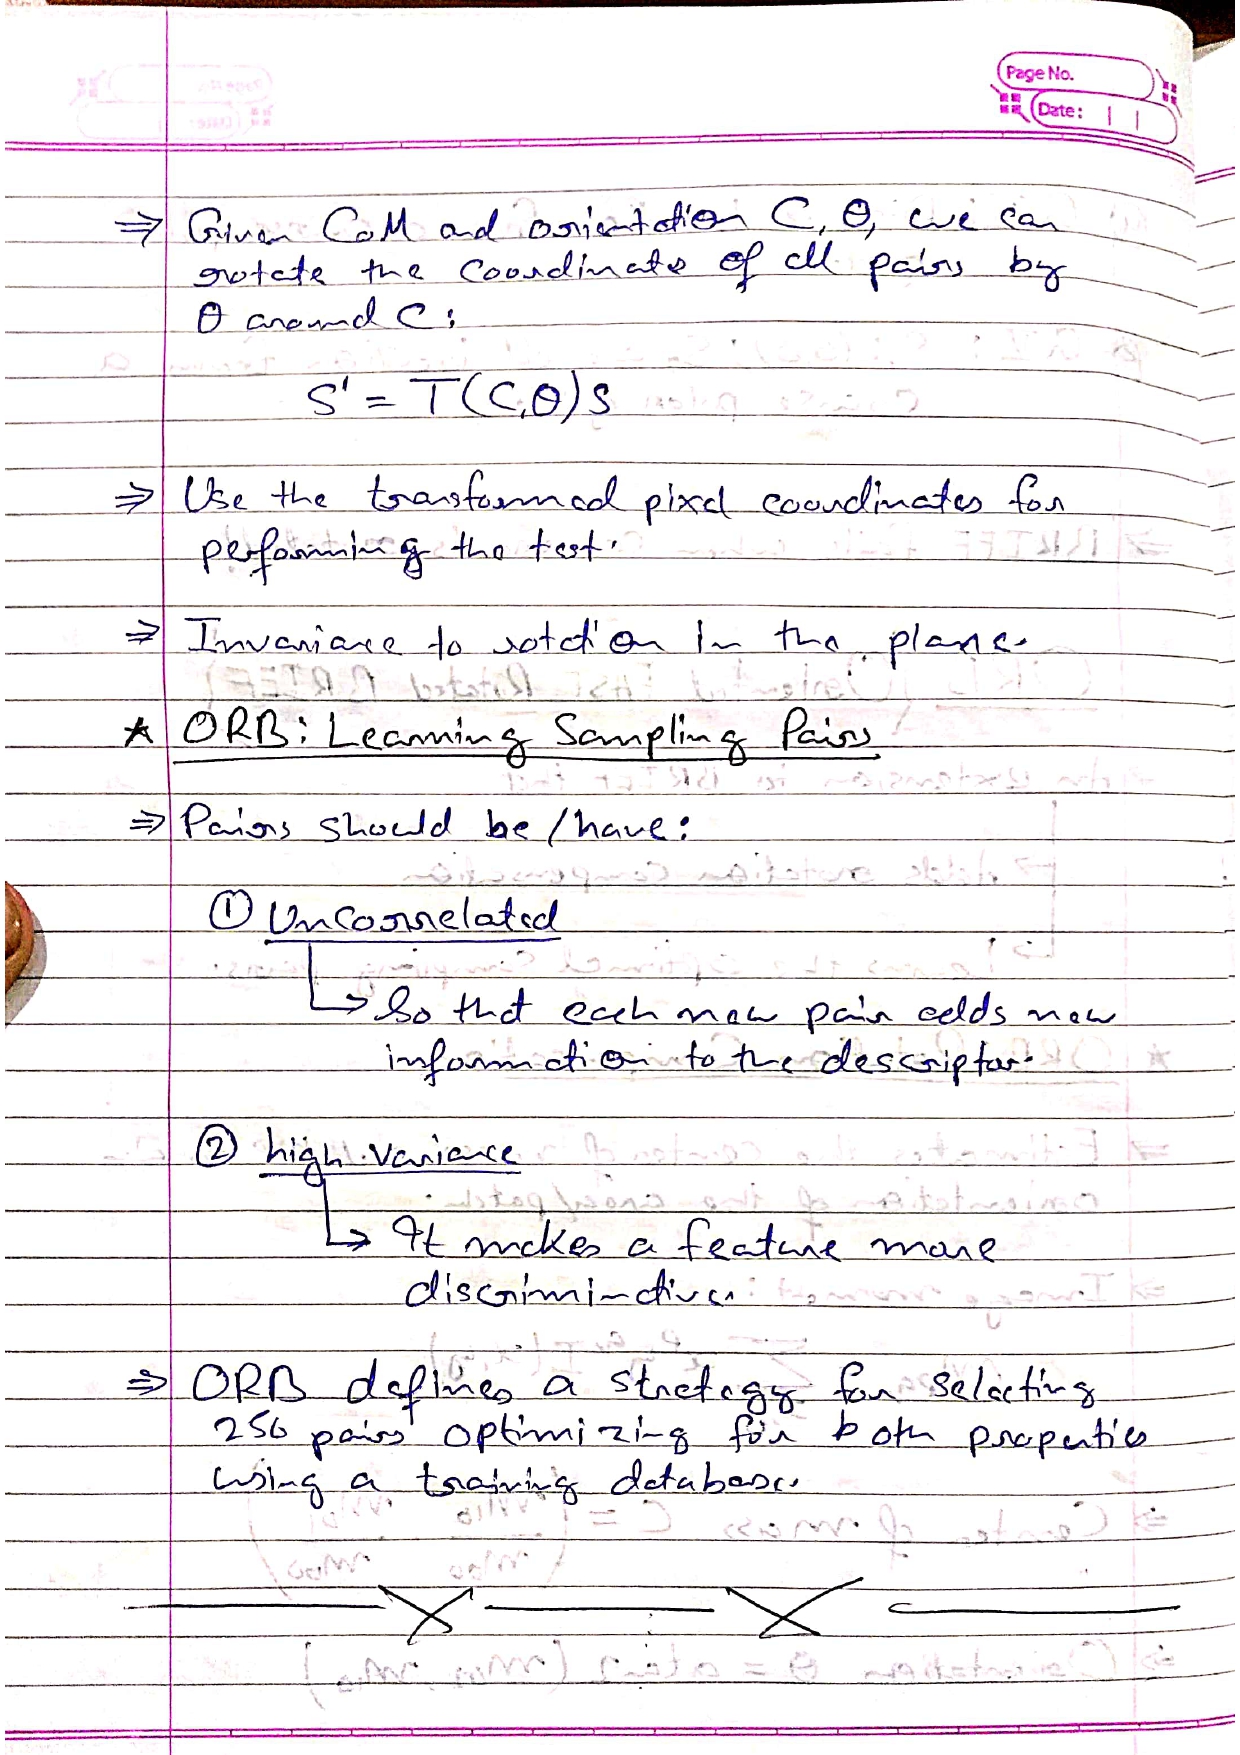 Page No.
Date:
⇒ Given CoM and orientation C, θ, we can
rotate the coordinate of all pairs by
θ around C:
S' = T(C,θ)s
⇒ Use the transformed pixel coordinates for
performing the test.
⇒ Invariance to rotation in the plane.
* ORB: Learning Sampling Pairs
⇒ Pairs should be/have:
① Uncorrelated
↳ So that each new pair adds new
information to the descriptor.
② high variance
↳ It makes a feature more
discriminative.
⇒ ORB defines a strategy for selecting
256 pairs optimizing for both properties
using a training database.